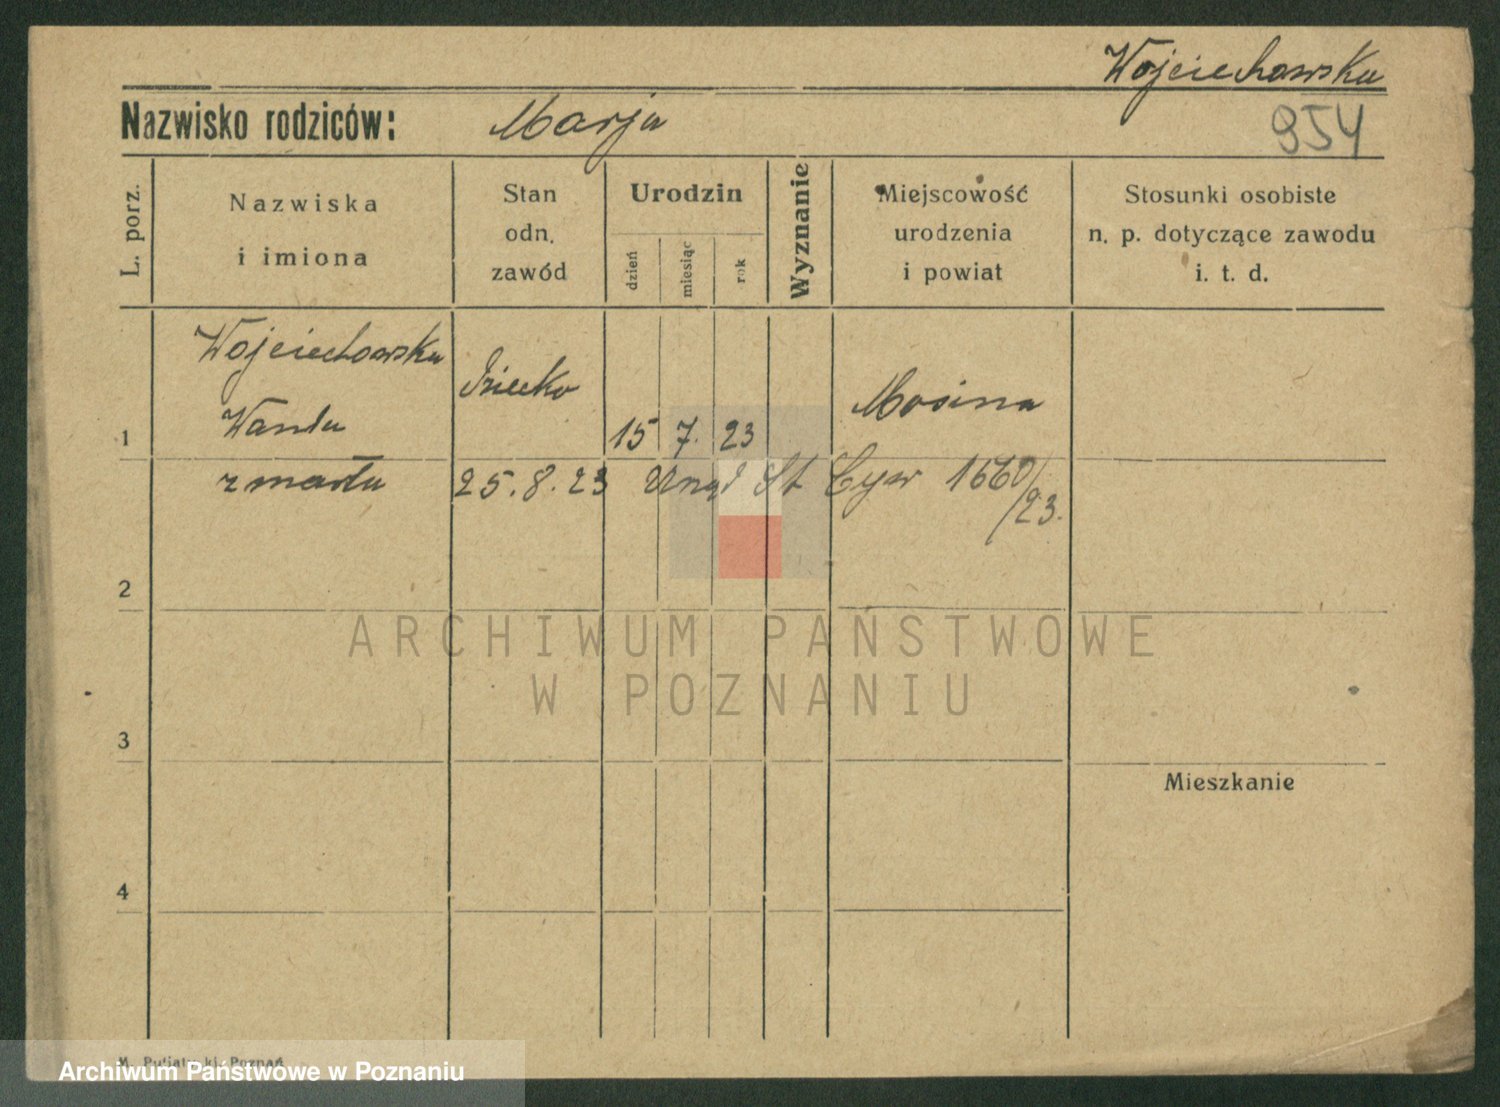 Wojciechowska
Nazwisko rodziców: Marja
954
L. porz.
Nazwiska
i imiona
Stan
odn.
zawód
Urodzin
dzień
miesiąc
rok
Wyznanie
Miejscowość
urodzenia
i powiat
Stosunki osobiste
n. p. dotyczące zawodu
i. t. d.
Wojciechowska
Wanda
dziecko
1
15 7. 23
Mosina
zmarła 25.8.23 Urząd St Cyw 1660/23.
2
3
4
Mieszkanie
ARCHIWUM PAŃSTWOWE
W POZNANIU
Poznań
Archiwum Państwowe w Poznaniu